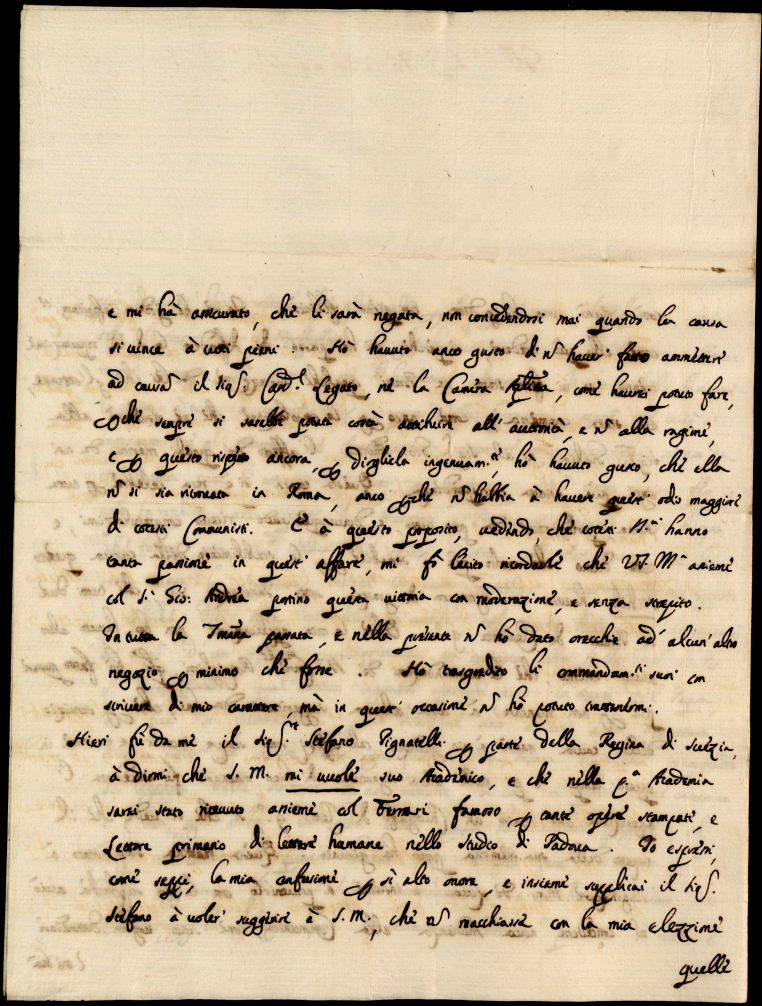 e mi hà assicurato, che li sarà negata, non concedendosi mai quando la causa
si vince à voti pieni. Hò havuto anco gusto di nō haver fatto ammettere
ad causā il Sig.r Card.l Legato, nè la Camera, come haverei potuto fare,
ꝑche sempre si sarebbe potuta costà attribuire all' auttorità, e nō alla ragione,
e ꝑ questo rispetto ancora, ꝑ dirgliela ingenuam.te, hò havuto gusto, che ella
nō si sia ritrovata in Roma, anco ꝑche nō habbia à havere quest' odio maggiore
di cotesti Communisti. E à questo proposito, vedendo, che cotesti hanno
tanta passione in quest' affare, mi fò lecito ricordarle che V.S. M. assieme
col S.r Gio: Andrea portino questa vittoria con moderazione, e senza strepito.
In tutta la 7mana passata, e nella presente nō hò dato orecchie ad' alcun' altro
negozio ꝑ minimo che fosse. Hò trasgredito li commandam.ti suoi con
scrivere di mio carattere, mà in quest' occasione nō hò potuto contenermi.
Hieri fù da me il Sig.r Stefano Pignatelli ꝑ parte della Regina di Svezia,
à dirmi che S. M. mi vuole suo Academico, e che nella p.a Academia
sarei stato ricevuto assieme col Ferrari famoso ꝑ tante opere stampate, e
Lettore primario di lettere humane nello studio di Padova. Io espressi,
come seppi, la mia confusione ꝑ sì alto onore, e insieme supplicai il Sig.r
Stefano à voler' suggerire à S. M., che nō macchiasse con la mia elezzione
quelle